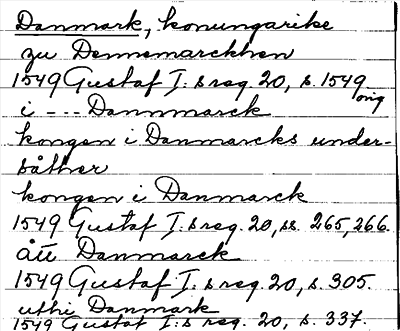 Danmark, konungarike
zu Dennemarckhen
1549 Gustaf I:s reg. 20, s. 1549 orig
i --- Dannmarck
kongen i Danmarcks under-
såther
kongen i Danmarck
1549 Gustaf I:s reg. 20, ss. 265, 266.
ått Danmarck
1549 Gustaf I:s reg. 20, s. 305.
uthi Danmark
1549 Gustaf I:s reg. 20, s. 337.